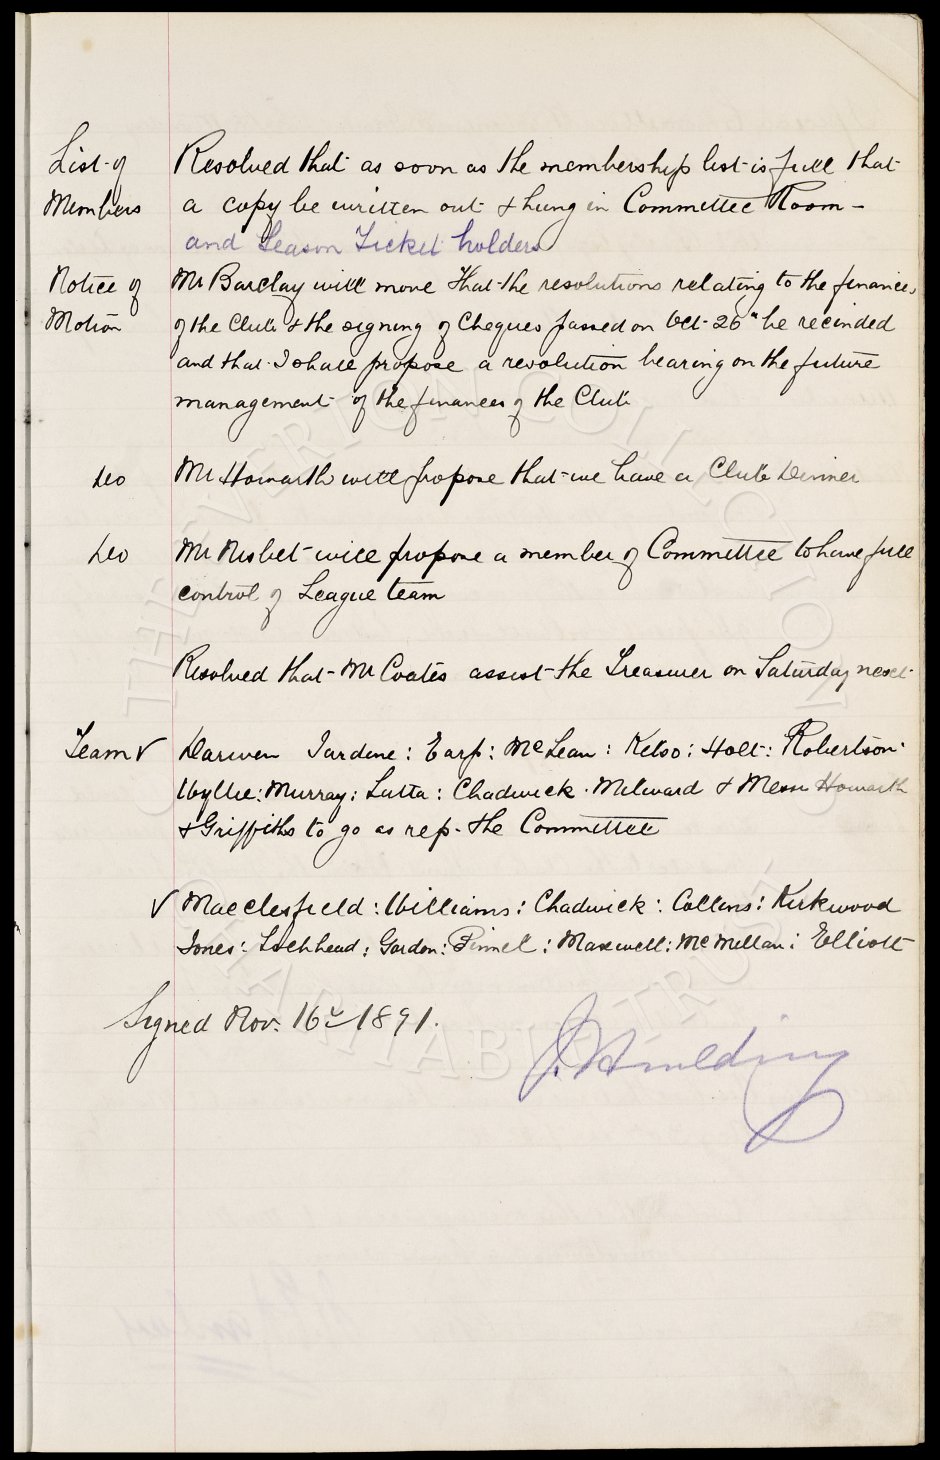 List of Resolved that as soon as the membership list is full that
Members a copy be written out & hung in Committee Room -
and Season Ticket holders
Notice of Mr Barclay will move that the resolutions relating to the finances
Motion of the Club & the signing of Cheques passed on Oct. 26th be recinded
and that I shall propose a resolution bearing on the future
management of the finances of the Club
Do Mr Howarth will propose that we have a Club Dinner
Do Mr Nisbet will propose a member of Committee to have full
control of League team
Resolved that Mr Coates assist the Treasurer on Saturday next
Team √ Darwen Jardine: Earp: McLean: Kelso: Holt: Robertson:
Wyllie: Murray: Latta: Chadwick. Milward & Messrs Howarth
& Griffiths to go as rep. the Committee
√ Macclesfield: Williams: Chadwick: Collins: Kirkwood
Jones: Lochhead: Gordon: Pinnel: Maxwell: McMillan: Elliott
Signed Nov. 16th 1891.
J. Houlding
THE EVERTON COLLECTION
CHARITABLE TRUST